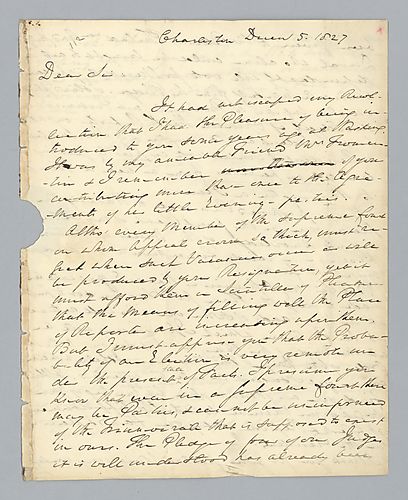 Charleston Decem 5. 1827
Dear Sir
It had not escaped my Recol-
lection that I had the Pleasure of being in-
troduced to you some years ago at Washing-
ton by my amiable Friend Mr
& I remember of your
contributing more than once to the Agre-
ments of his little Evening parties.
Altho every Member of the Supreme Court
on whom Appeal crowd so thick must re-
gret when such Vacancies occur as will
be produced by your Resignation, yet it
must afford them a of Pleasure
that the Means of filling well the Place
of Reporter are increasing upon them.
But I must apprise you that the Proba-
bility of an Election is very remote un-
der the present State of facts. I presume you
know that even in a Supreme Court there
may be Parties, & can not be uninformed
of the that is supposed to exist
in ours. The Pledge of four of our Judges
it is well understood has already been